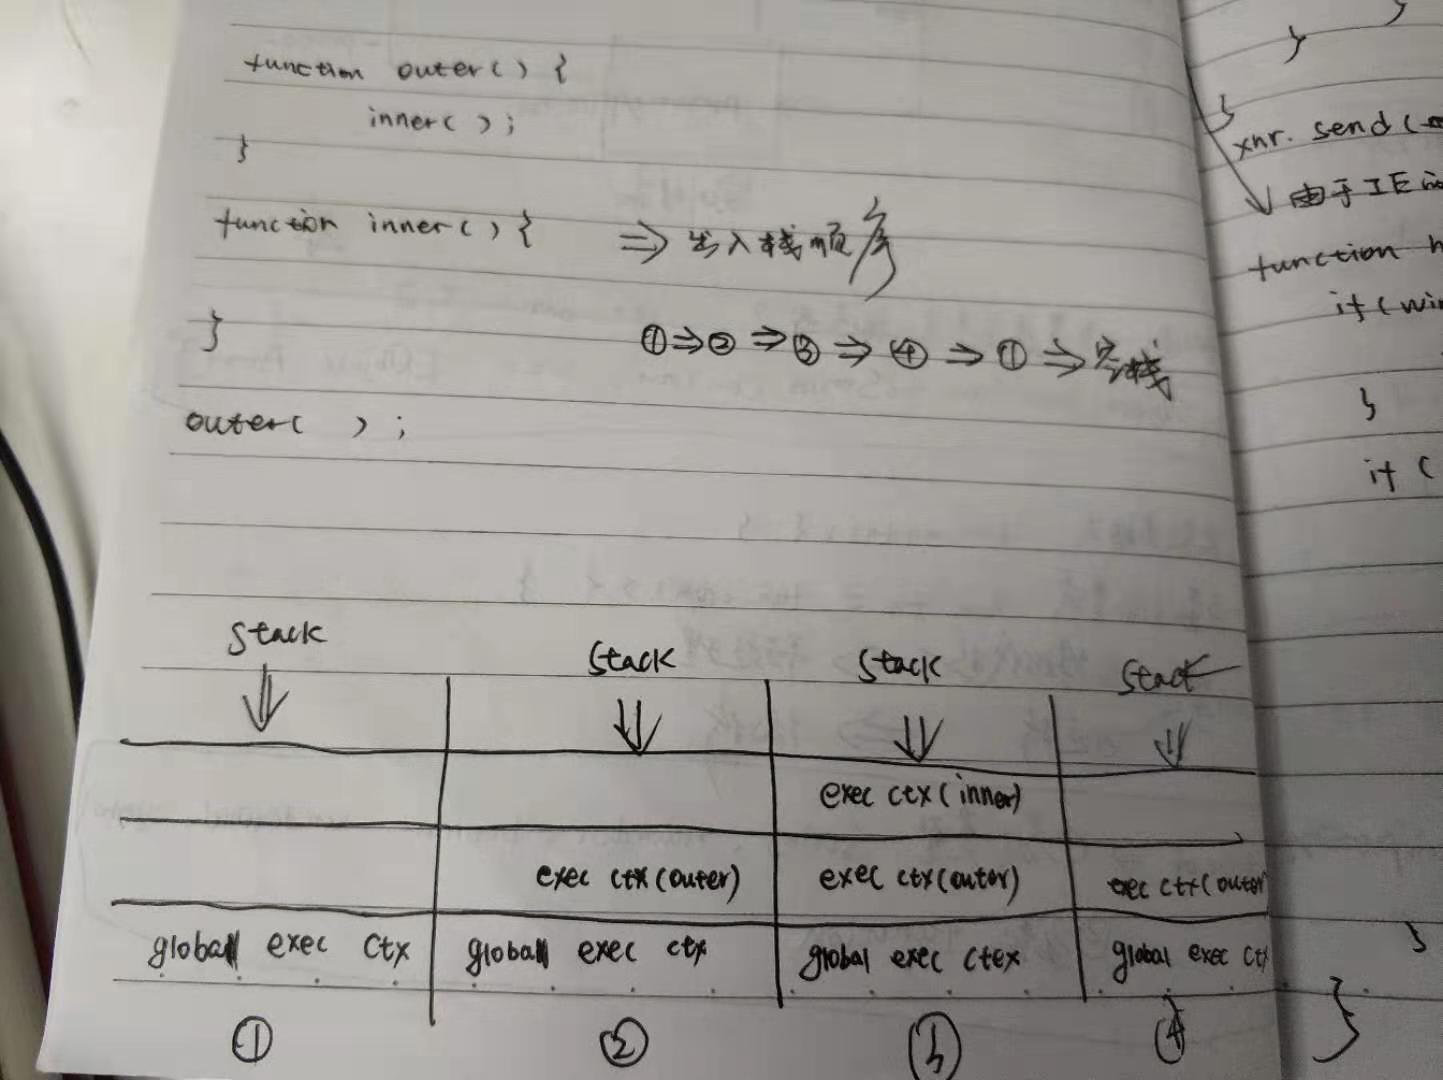 function outer() {
inner();
}
function inner() { ⇒ 出入栈顺序
} ①⇒②⇒③⇒④⇒①⇒空栈
outer( );
Stack Stack Stack Stack
exec ctx(inner)
exec ctx(outer) exec ctx(outor) exec ctx(outer
global exec ctx global exec ctx global exec ctex global exec ct
① ② ③ ④
}
}
}
xhr. send(
由于IE
function h
if(win
}
if (
}
}